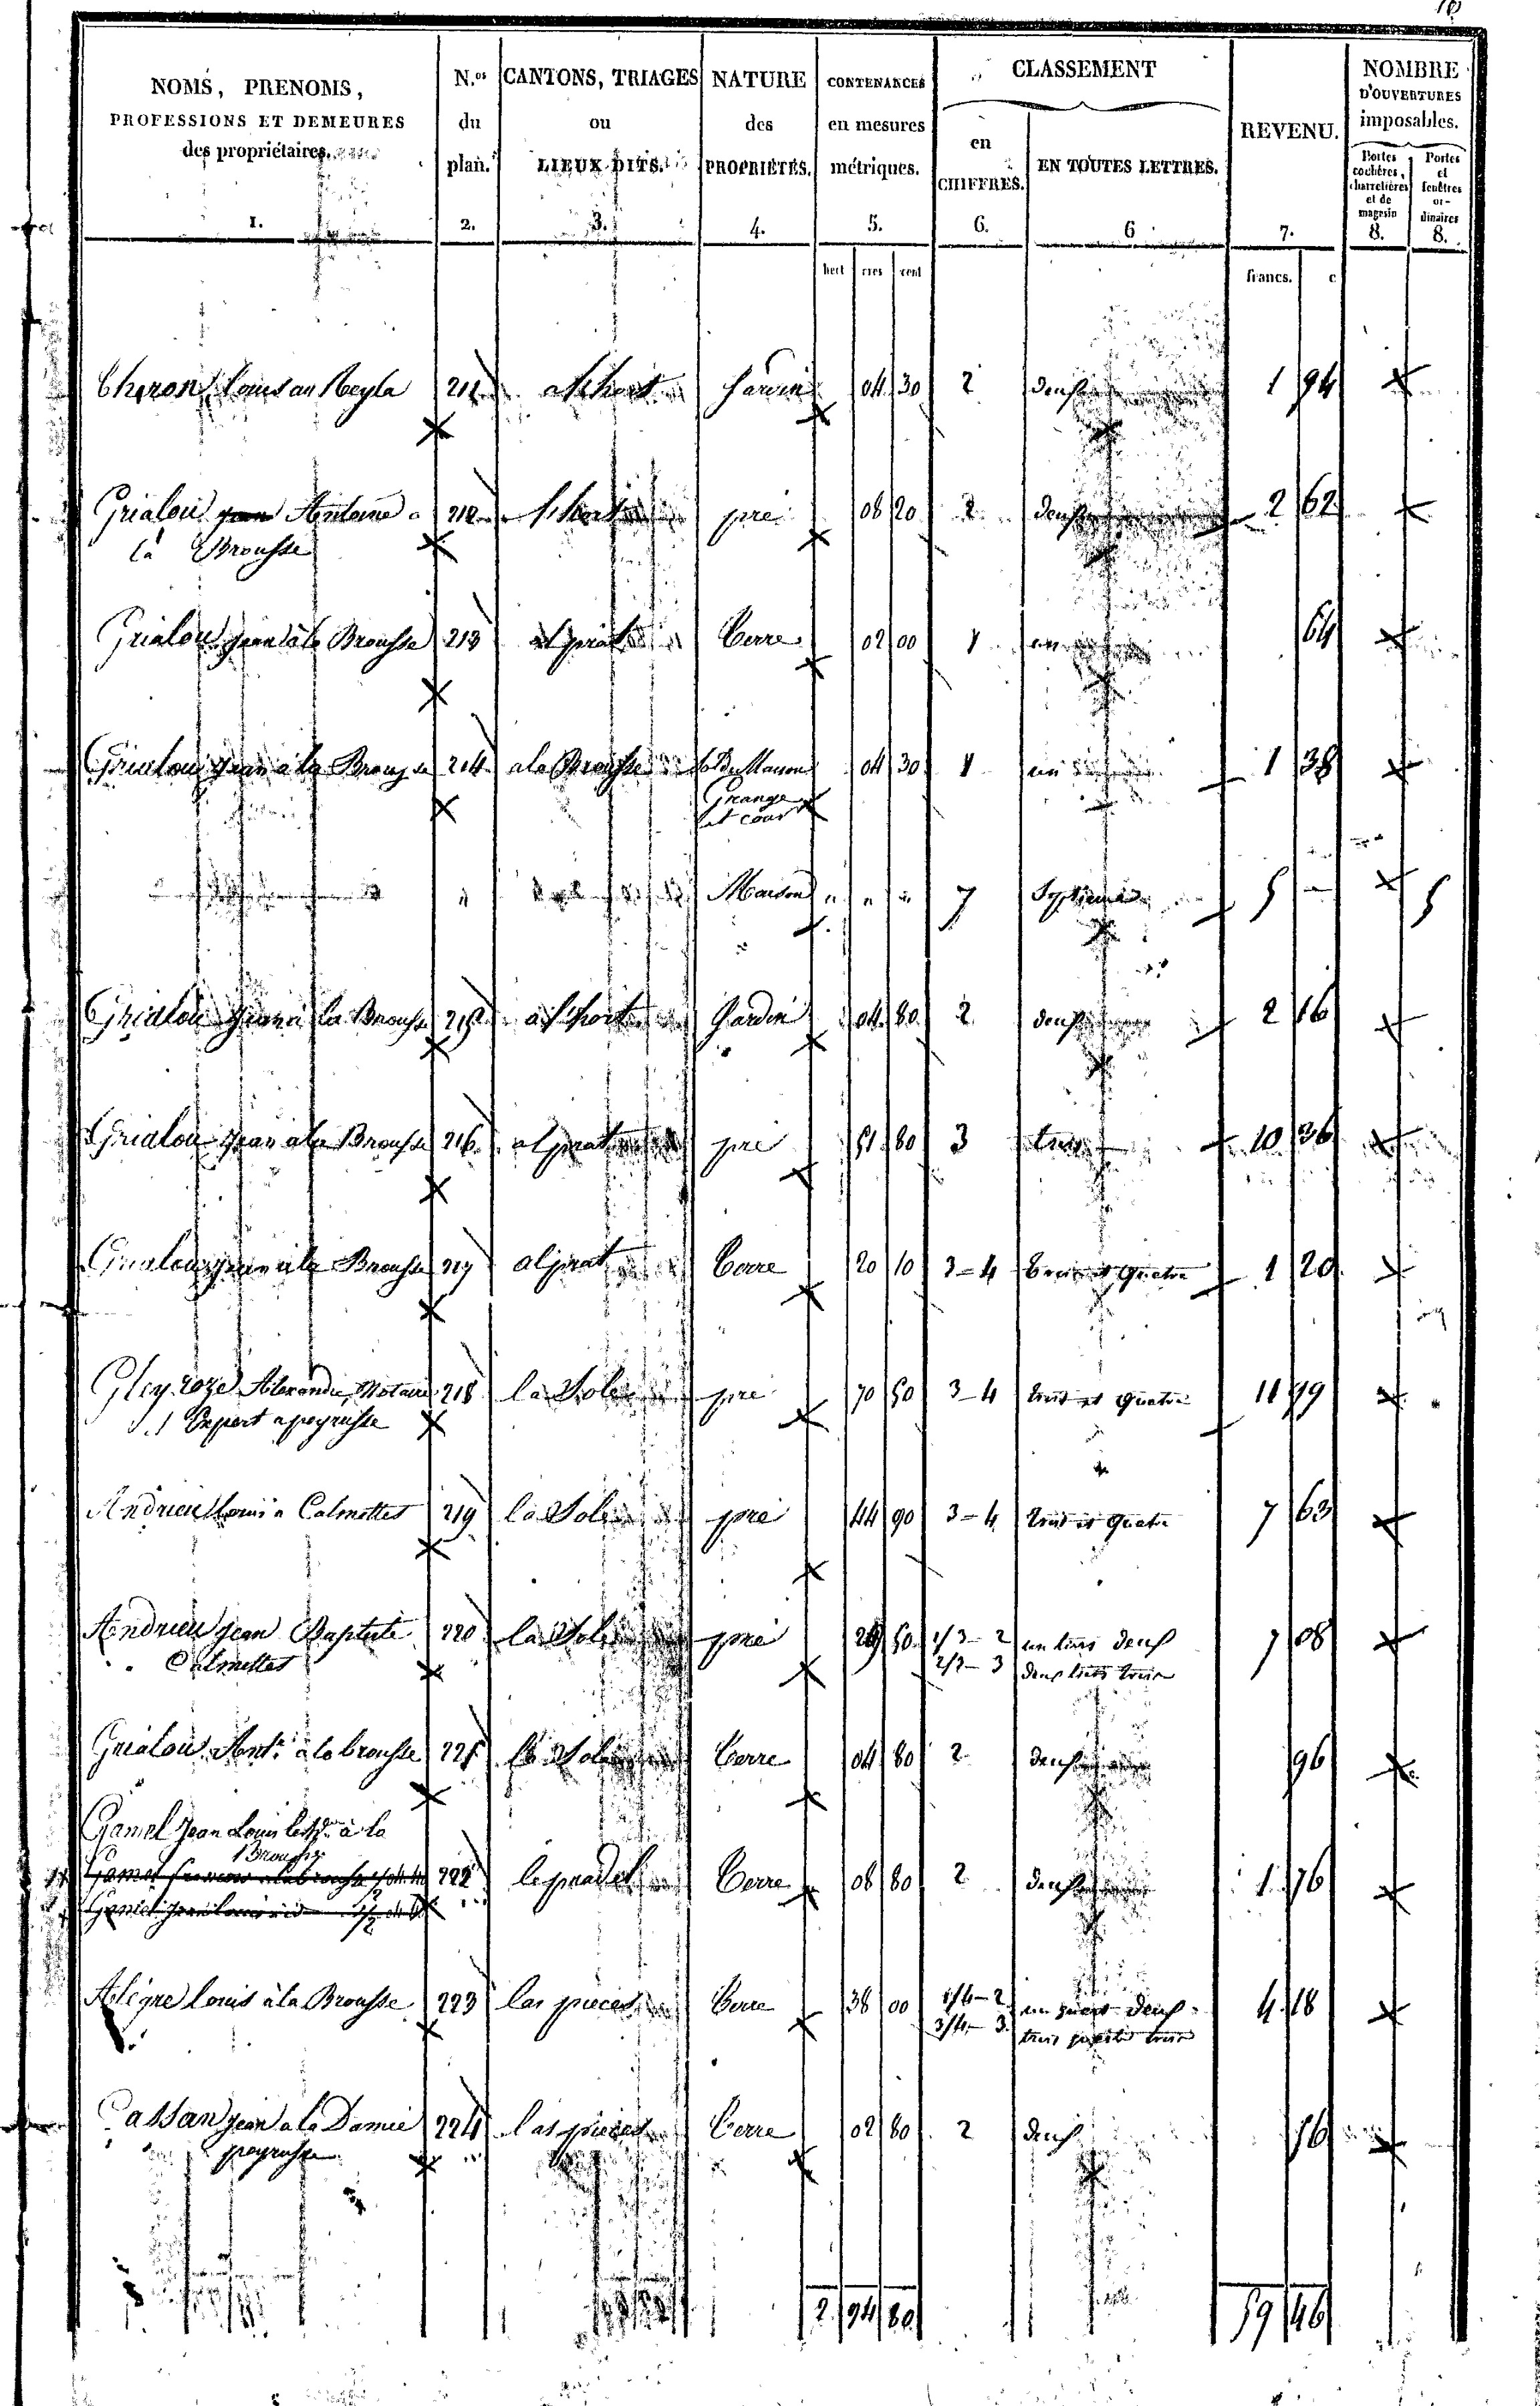 NOMS, PRENOMS,
PROFESSIONS ET DEMEURES
des propriétaires.
1.
N.os
du
plan.
2.
CANTONS, TRIAGES
ou
LIEUX DITS.
3.
NATURE
des
PROPRIÉTÉS.
4.
CONTENANCES
en mesures
métriques.
5.
CLASSEMENT
en
CHIFFRES.
6.
EN TOUTES LETTRES.
6
REVENU.
7.
NOMBRE
D'OUVERTURES
imposables.
Portes cochères, charretières et de magasin
8.
Portes et fenêtres ordinaires
8.
hect ares cent francs. c
Louis au 211 Jardin 04 30 2 deux 1 94
Grialou Antoine a 212 pré 08 20 2 deux 2 62
la Brousse
Grialou Jean à la Brousse 213 al prat Terre 02 00 1 un 64
Grialou Jean à la Brousse 214 a la Brousse Sol De Maison 04 30 1 un 1 38
Grange
et cour
" Maison " " " 7 Septieme 5 5
Grialou Jean à la Brousse 215 a l'hort Jardin 04 80 2 deux 2 16
Grialou Jean a la Brousse 216 al prat pré 51 80 3 trois 10 36
Grialou Jean a la Brousse 217 al prat Terre 20 10 3-4 trois et Quatre 1 20
Gleyroze Alexandre, Notaire 218 la Sole pré 70 50 3-4 trois et Quatre 11 99
Expert a peyrusse
Andrieu Louis a Calmettes 219 la Sole pré 44 90 3-4 trois et Quatre 7 63
Andrieu Jean Baptiste 220 la Sole pré 50 1/3-2 un tiers deux 7 08
Calmettes 2/3-3 deux tiers trois
Grialou Ant.e à la brousse 221 la Sole Terre 04 80 2 deux 96
Gamel Jean Louis à la
Brousse
222 le pradel Terre 08 80 2 deux 1 76
Alégre Louis à la Brousse 223 las pieces Terre 38 00 1/4-2 un quart deux 4 18
3/4-3 trois quarts trois
Cassan Jean a la 224 las pieces Terre 02 80 2 deux 56
peyrusse
2 94 80 59 46